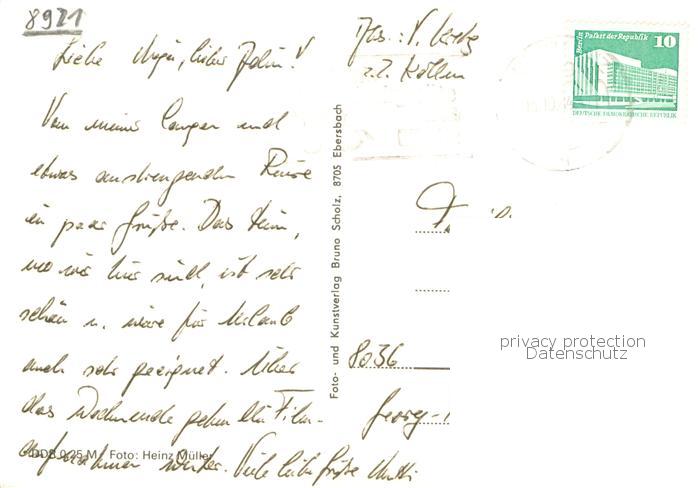 8921
Liebe Anja, lieber John!
Von meiner langen und
etwas anstrengenden Reise
ein paar Grüße. Das Heim,
wo wir hier sind, ist sehr
schön u. wäre für Urlaub
auch sehr geeignet. Über
das Wochenende gehen die Film-
aufnahmen weiter. Viele liebe Grüße Mutti
DDR 0,25 M Foto: Heinz Müller
Foto- und Kunstverlag Bruno Scholz, 8705 Ebersbach
Abs.: V.
z.Z.
Berlin Palast der Republik
10
DEUTSCHE DEMOKRATISCHE REPUBLIK
8036
Georg-
privacy protection
Datenschutz